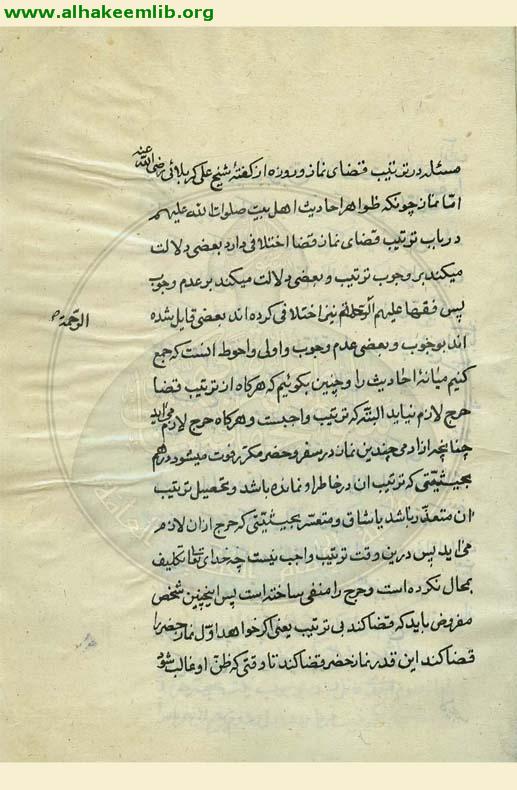 www.alhakeemlib.org
مسئله در ترتیب قضای نماز و روزه از کفتهٔ شیخ علی کربلائی رضی الله عنه
امّا نماز چونکه ظواهر احادیث اهل بیت صلوات الله علیهم
در باب ترتیب قضای نماز قضا اختلافی دارد بعضی دلالت
میکند بر وجوب ترتیب و بعضی دلالت میکند بر عدم وجوب
پس فقها علیهم الرحمة نیز اختلافی کرده اند بعضی قایل شده
الرحمة
اند بوجوب و بعضی عدم وجوب و اولی و احوط انست که جمع
کنیم میانهٔ احادیث را و چنین بکوئیم که هرکاه از ترتیب قضا
حرج لازم نیاید البتّه که ترتیب واجبست و هرکاه حرج لازم می اید
چنانچه از ادمی چندین نماز در سفر و حضر مکرّر فوت میشود در هم
بحیثیّتی که ترتیب ان در خاطر او نمانده باشد و تحصیل ترتیب
ان متعذّر باشد یا شاق و متعسّر بحیثیّتی که حرج ازان لازم
می اید پس درین وقت ترتیب واجب نیست چه خدای تعالی تکلیف
بمحال نکرده است و حرج را منفی ساخته است پس اینچنین شخص
مفروض باید که قضا کند بی ترتیب یعنی اکر خواهد اوّل نماز حضر را
قضا کند این قدر نماز حضر قضا کند تا وقتی که ظنّ او غالب شود